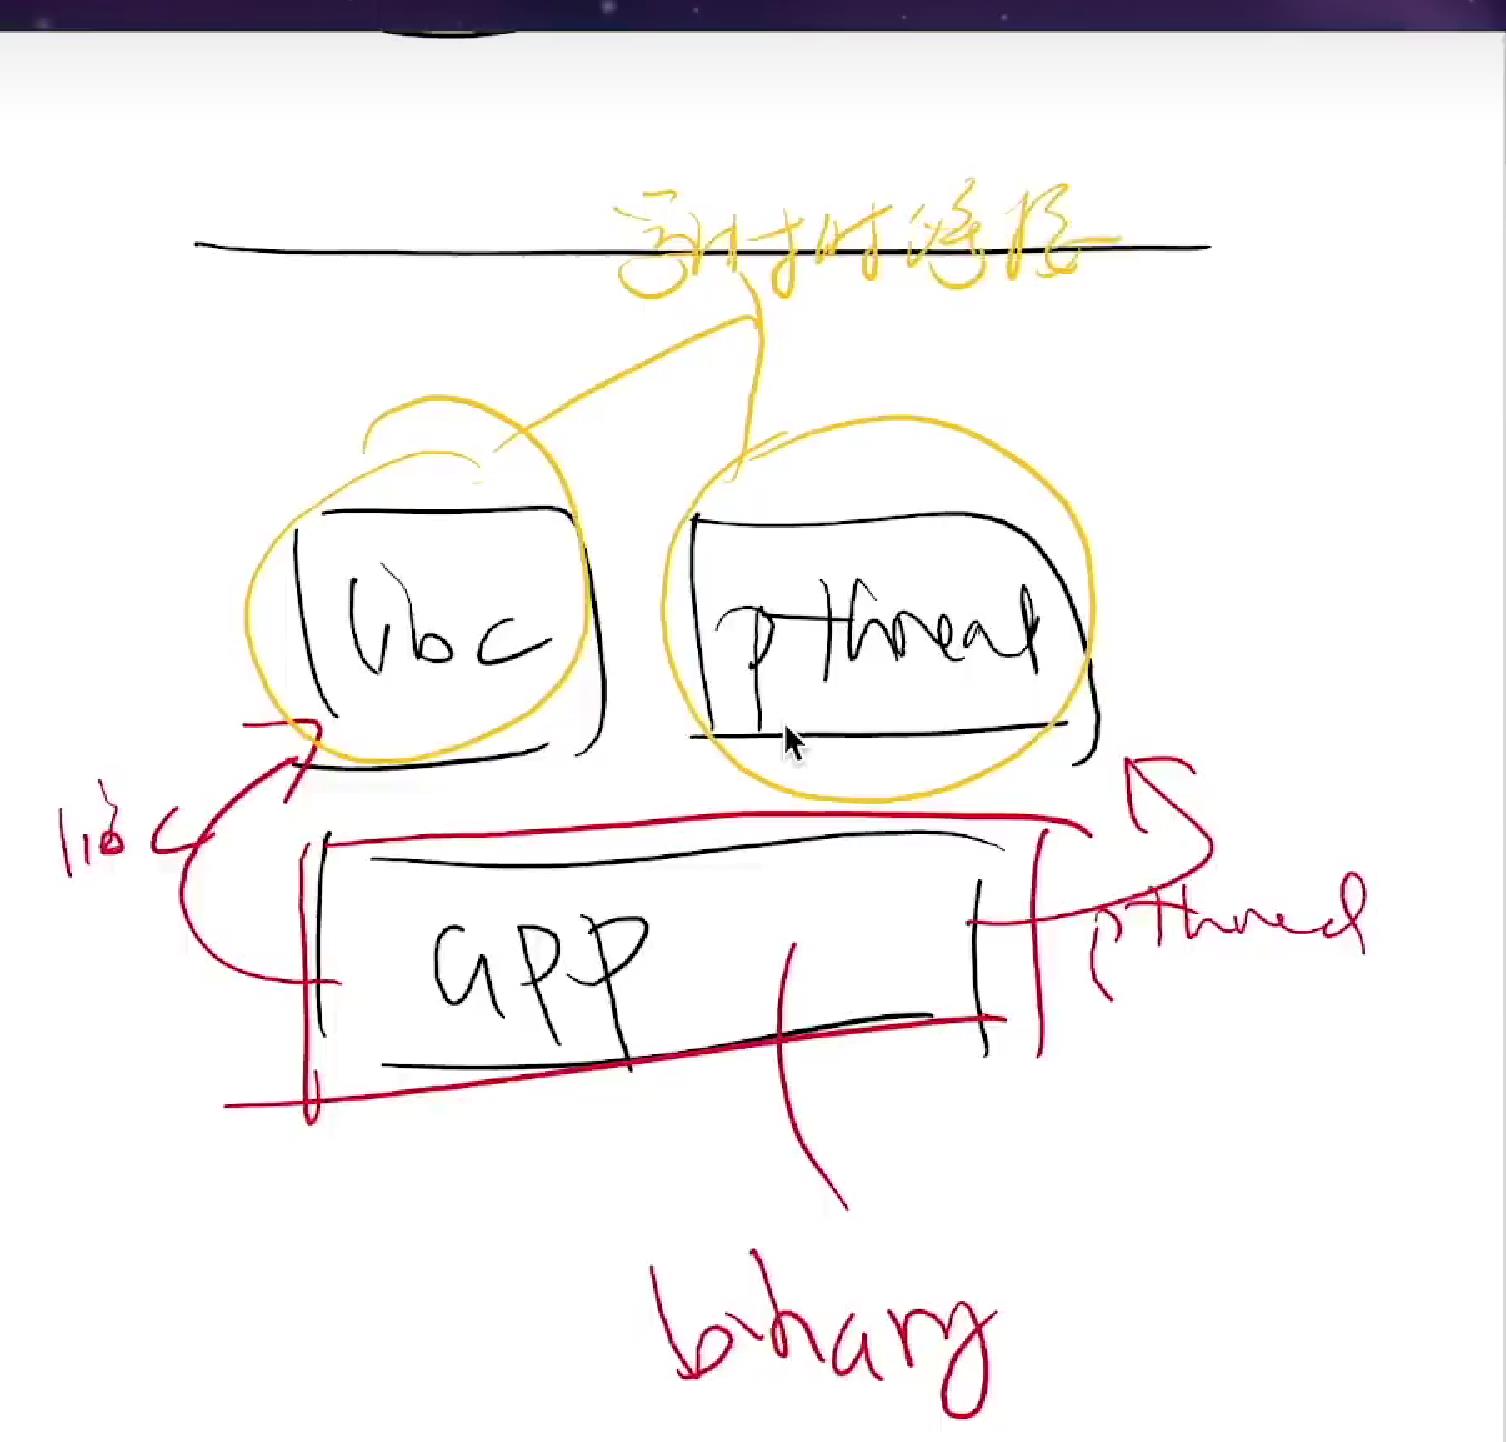 libc
pthread
libc
app
pthread
binary